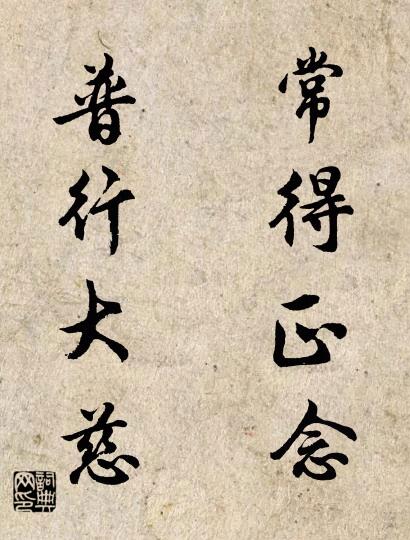 常得正念
普行大慈
詞典網印